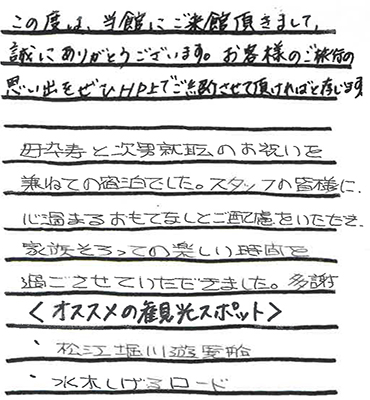 この度は、当館にご来館頂きまして、
誠にありがとうございます。お客様のご旅行の
思い出をぜひHP上でご紹介させて頂ければと存じます
母卒寿と次男就職のお祝いを
兼ねての宿泊でした。スタッフの皆様に、
心温まるおもてなしとご配慮をいただき、
家族そろっての楽しい時間を
過ごさせていただきました。多謝
＜オススメの観光スポット＞
・松江堀川遊覧船
・水木しげるロード